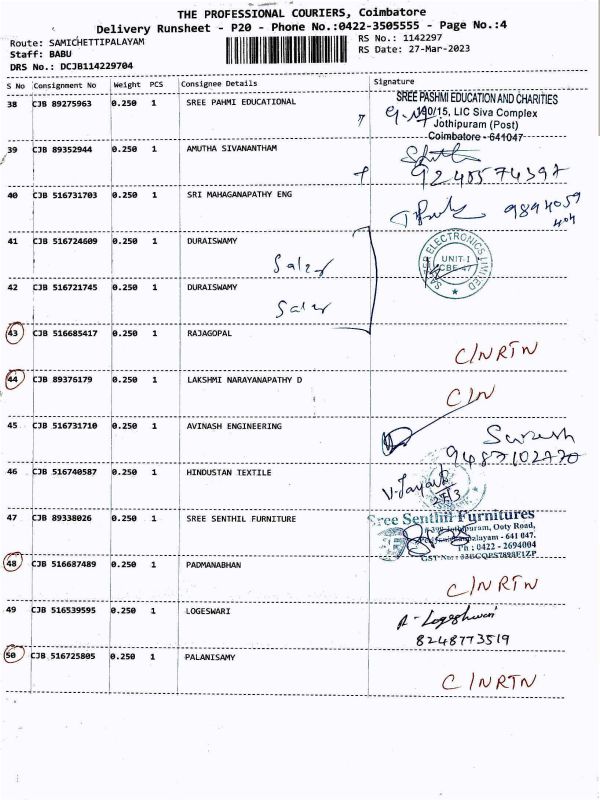 THE PROFESSIONAL COURIERS, Coimbatore
Delivery Runsheet - P20 - Phone No.:0422-3505555 - Page No.:4
Route: SAMICHETTIPALAYAM
RS No.: 1142297
Staff: BABU
RS Date: 27-Mar-2023
DRS No.: DCJB114229704
S No Consignment No Weight PCS Consignee Details Signature
38 CJB 89275963 0.250 1 SREE PAHMI EDUCATIONAL
SREE PASHMI EDUCATION AND CHARITIES
90/15, LIC Siva Complex
Jothipuram (Post)
Coimbatore - 641047
39 CJB 89352944 0.250 1 AMUTHA SIVANANTHAM
40 CJB 516731703 0.250 1 SRI MAHAGANAPATHY ENG
9894059
404
41 CJB 516724609 0.250 1 DURAISWAMY
ELECTRONICS LIMITED
UNIT-I
CBE-47
42 CJB 516721745 0.250 1 DURAISWAMY
43 CJB 516685417 0.250 1 RAJAGOPAL
C/NRTN
44 CJB 89376179 0.250 1 LAKSHMI NARAYANAPATHY D
C/N
45 CJB 516731710 0.250 1 AVINASH ENGINEERING
Suresh
9487102770
46 CJB 516740587 0.250 1 HINDUSTAN TEXTILE
47 CJB 89338026 0.250 1 SREE SENTHIL FURNITURE
Sree Senthil Furnitures
Ooty Road,
641 047.
Ph : 0422 - 2694004
48 CJB 516687489 0.250 1 PADMANABHAN
C/NRTN
49 CJB 516539595 0.250 1 LOGESWARI
R- Logeshwari
8248773519
50 CJB 516725805 0.250 1 PALANISAMY
C/NRTN